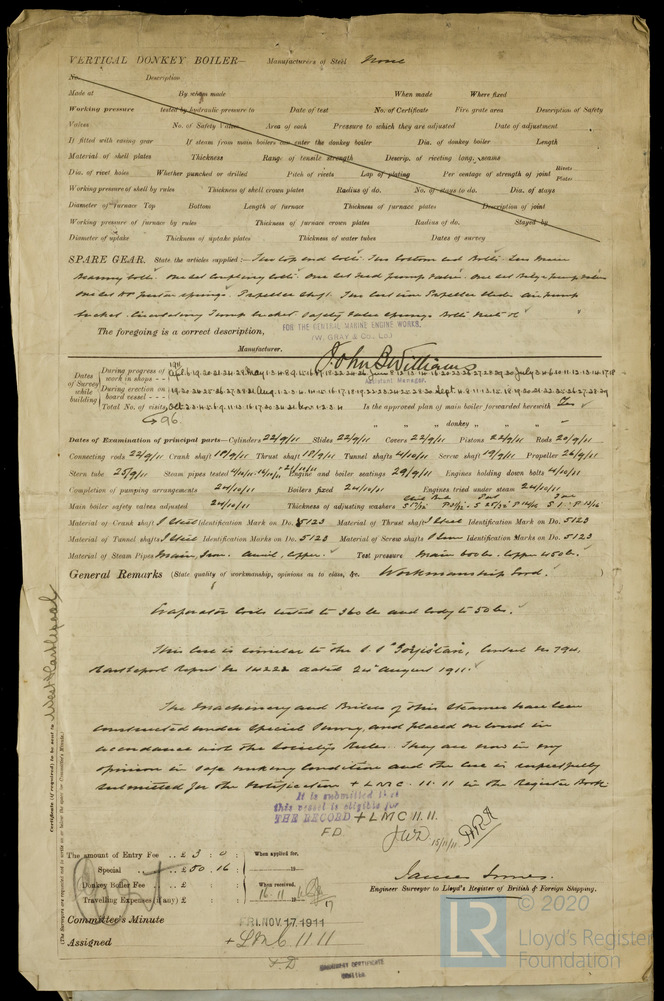 VERTICAL DONKEY BOILER— Manufacturers of Steel None
No. Description
Made at By whom made When made Where fixed
Working pressure tested by hydraulic pressure to Date of test No. of Certificate Fire grate area Description of Safety
Valves No. of Safety Valves Area of each Pressure to which they are adjusted Date of adjustment
If fitted with easing gear If steam from main boilers can enter the donkey boiler Dia. of donkey boiler Length
Material of shell plates Thickness Range of tensile strength Descrip. of riveting long. seams
Dia. of rivet holes Whether punched or drilled Pitch of rivets Lap of plating Per centage of strength of joint Rivets Plates
Working pressure of shell by rules Thickness of shell crown plates Radius of do. No. of stays to do. Dia. of stays
Diameter of furnace Top Bottom Length of furnace Thickness of furnace plates Description of joint
Working pressure of furnace by rules Thickness of furnace crown plates Radius of do. Stayed by
Diameter of uptake Thickness of uptake plates Thickness of water tubes Dates of survey
SPARE GEAR. State the articles supplied:— Two top end bolts. Two bottom end Bolts. Two Main
Bearing bolts. One set Coupling bolts. One set Feed pump valves. One set Bilge pump valves
One set piston springs. Propeller shaft. Two cast iron Propeller blades air pump
bucket. Circulating Pump bucket. Safety valve spring. Bolts Nuts &c
The foregoing is a correct description,
FOR THE CENTRAL MARINE ENGINE WORKS,
(W. GRAY & Co., Ld.)
Manufacturer. John B Williams
Assistant Manager.
Dates of Survey while building
During progress of work in shops -- 1911
During erection on board vessel ---
Total No. of visits 96 Is the approved plan of main boiler forwarded herewith Yes
" " " donkey " " " –
Dates of Examination of principal parts—Cylinders 22/9/11 Slides 22/9/11 Covers 22/9/11 Pistons 22/9/11 Rods 20/9/11
Connecting rods 22/9/11 Crank shaft 18/9/11 Thrust shaft 18/9/11 Tunnel shafts 4/10/11 Screw shaft 19/9/11 Propeller 26/9/11
Stern tube 25/9/11 Steam pipes tested Engine and boiler seatings 29/9/11 Engines holding down bolts 4/10/11
Completion of pumping arrangements 24/10/11 Boilers fixed 24/10/11 Engines tried under steam 24/10/11
Main boiler safety valves adjusted 24/10/11 Thickness of adjusting washers
Material of Crank shaft I Steel Identification Mark on Do. 5123 Material of Thrust shaft I Steel Identification Mark on Do. 5123
Material of Tunnel shafts I Steel Identification Marks on Do. 5123 Material of Screw shafts I Iron Identification Marks on Do. 5123
Material of Steam Pipes Main, Iron. Auxil, Copper. Test pressure Main 600 lbs. Copper 450 lbs.
General Remarks (State quality of workmanship, opinions as to class, &c. Workmanship Good. )
Evaporator coils tested to 360 lbs and body to 50 lbs.
This Case is similar to the S S "Gorjistan,
Hartlepool Report No 14222 dated 24 August 1911.
The Machinery and Boilers of this Steamer have been
constructed under Special Survey, and placed on board in
accordance with the Society's Rules. They are now in my
opinion in safe working Condition and the Case is respectfully
submitted for the Notification + LMC. 11.11 in the Register Book
It is submitted that
this vessel is eligible for
THE RECORD + LMC 11.11.
F.D.
J.W.D. 15/11/11
Certificate (if required) to be sent to West Hartlepool
(The Surveyors are requested not to write on or below the space for Committee's Minute.)
The amount of Entry Fee .. £ 3 : 0 : When applied for,
Special .. £ 50 . 16 :
Donkey Boiler Fee .. £ : : When received,
Travelling Expenses (if any) £ : : 16.11.11
James Innes.
Engineer Surveyor to Lloyd's Register of British & Foreign Shipping.
Committee's Minute FRI. NOV. 17. 1911
Assigned + LMC 11 11
F.D
MACHINERY CERTIFICATE
WRITTEN
LR © 2020
Lloyd's Register
Foundation